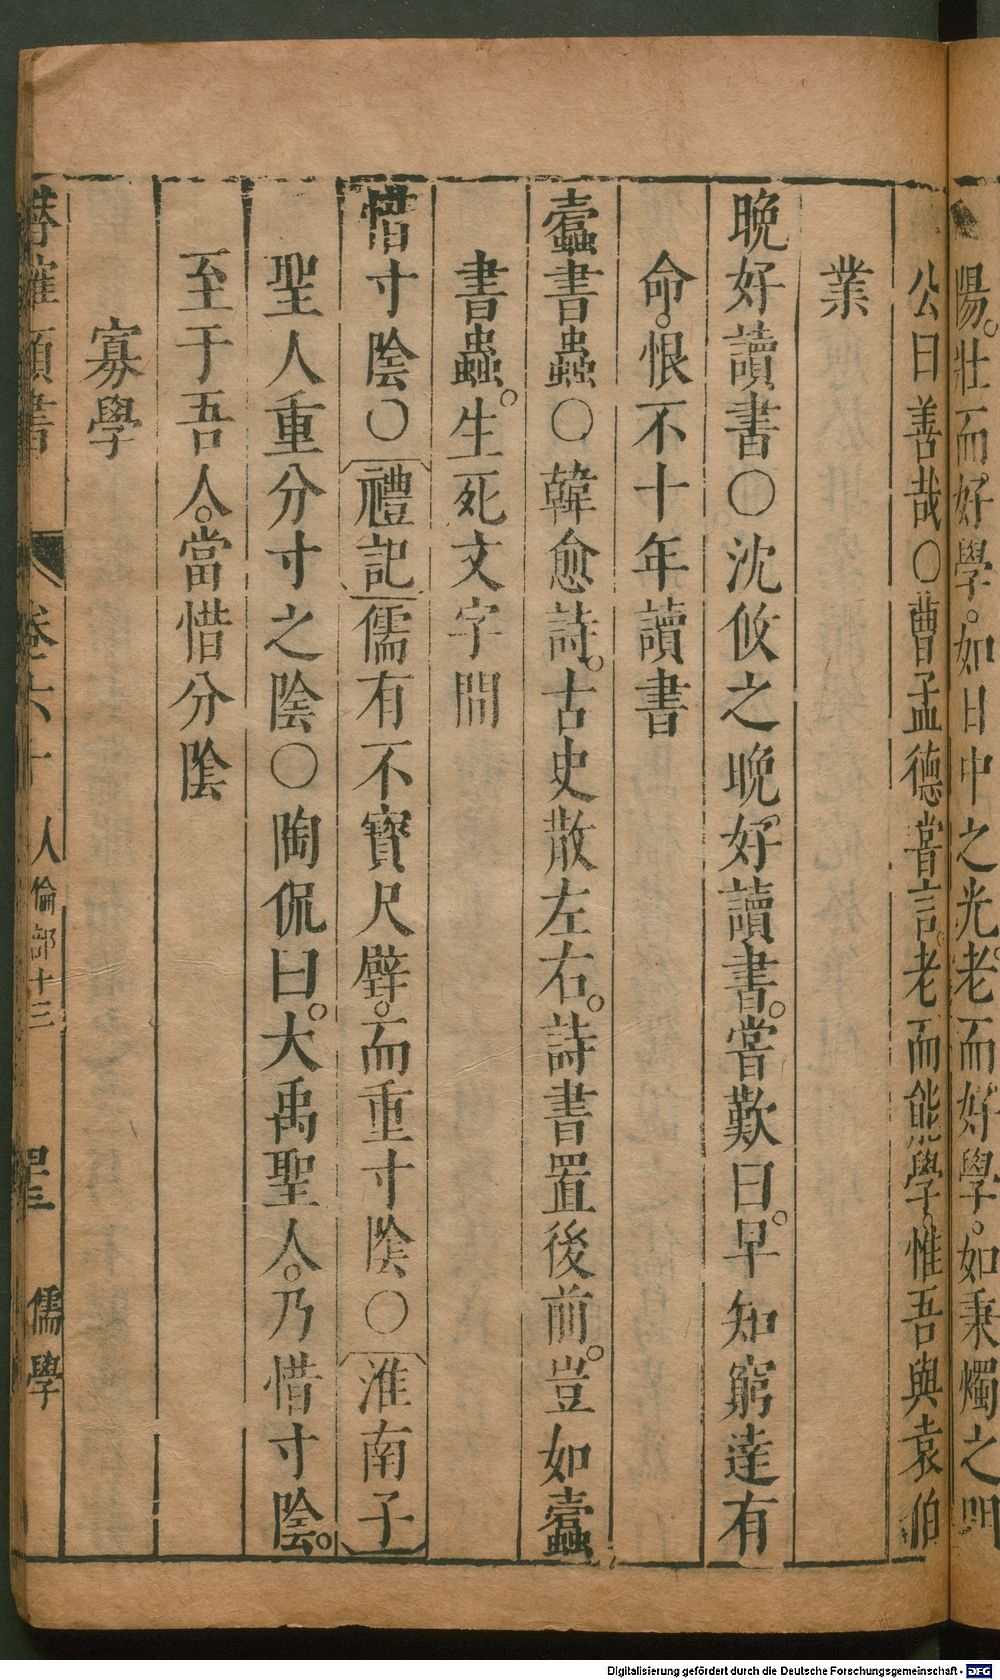 陽。壯而好學。如日中之光。老而好學。如秉燭之明
公曰善哉〇曹孟德嘗言。老而能學。惟吾與袁伯
業
晚好讀書〇沈攸之晚。好讀書。嘗歎曰。早知窮達有
命。恨不十年讀書
蠹書蟲〇韓愈詩。古史散左右。詩書置後前。豈如蠹
書蟲。生死文字間
惜寸陰〇禮記儒有不寶尺璧。而重寸陰〇淮南子
聖人重分寸之陰〇陶侃曰。大禹聖人。乃惜寸陰。
至于吾人。當惜分陰
寡學
類書 卷六十 人倫部十三 儒學
Digitalisierung gefördert durch die Deutsche Forschungsgemeinschaft - DFG